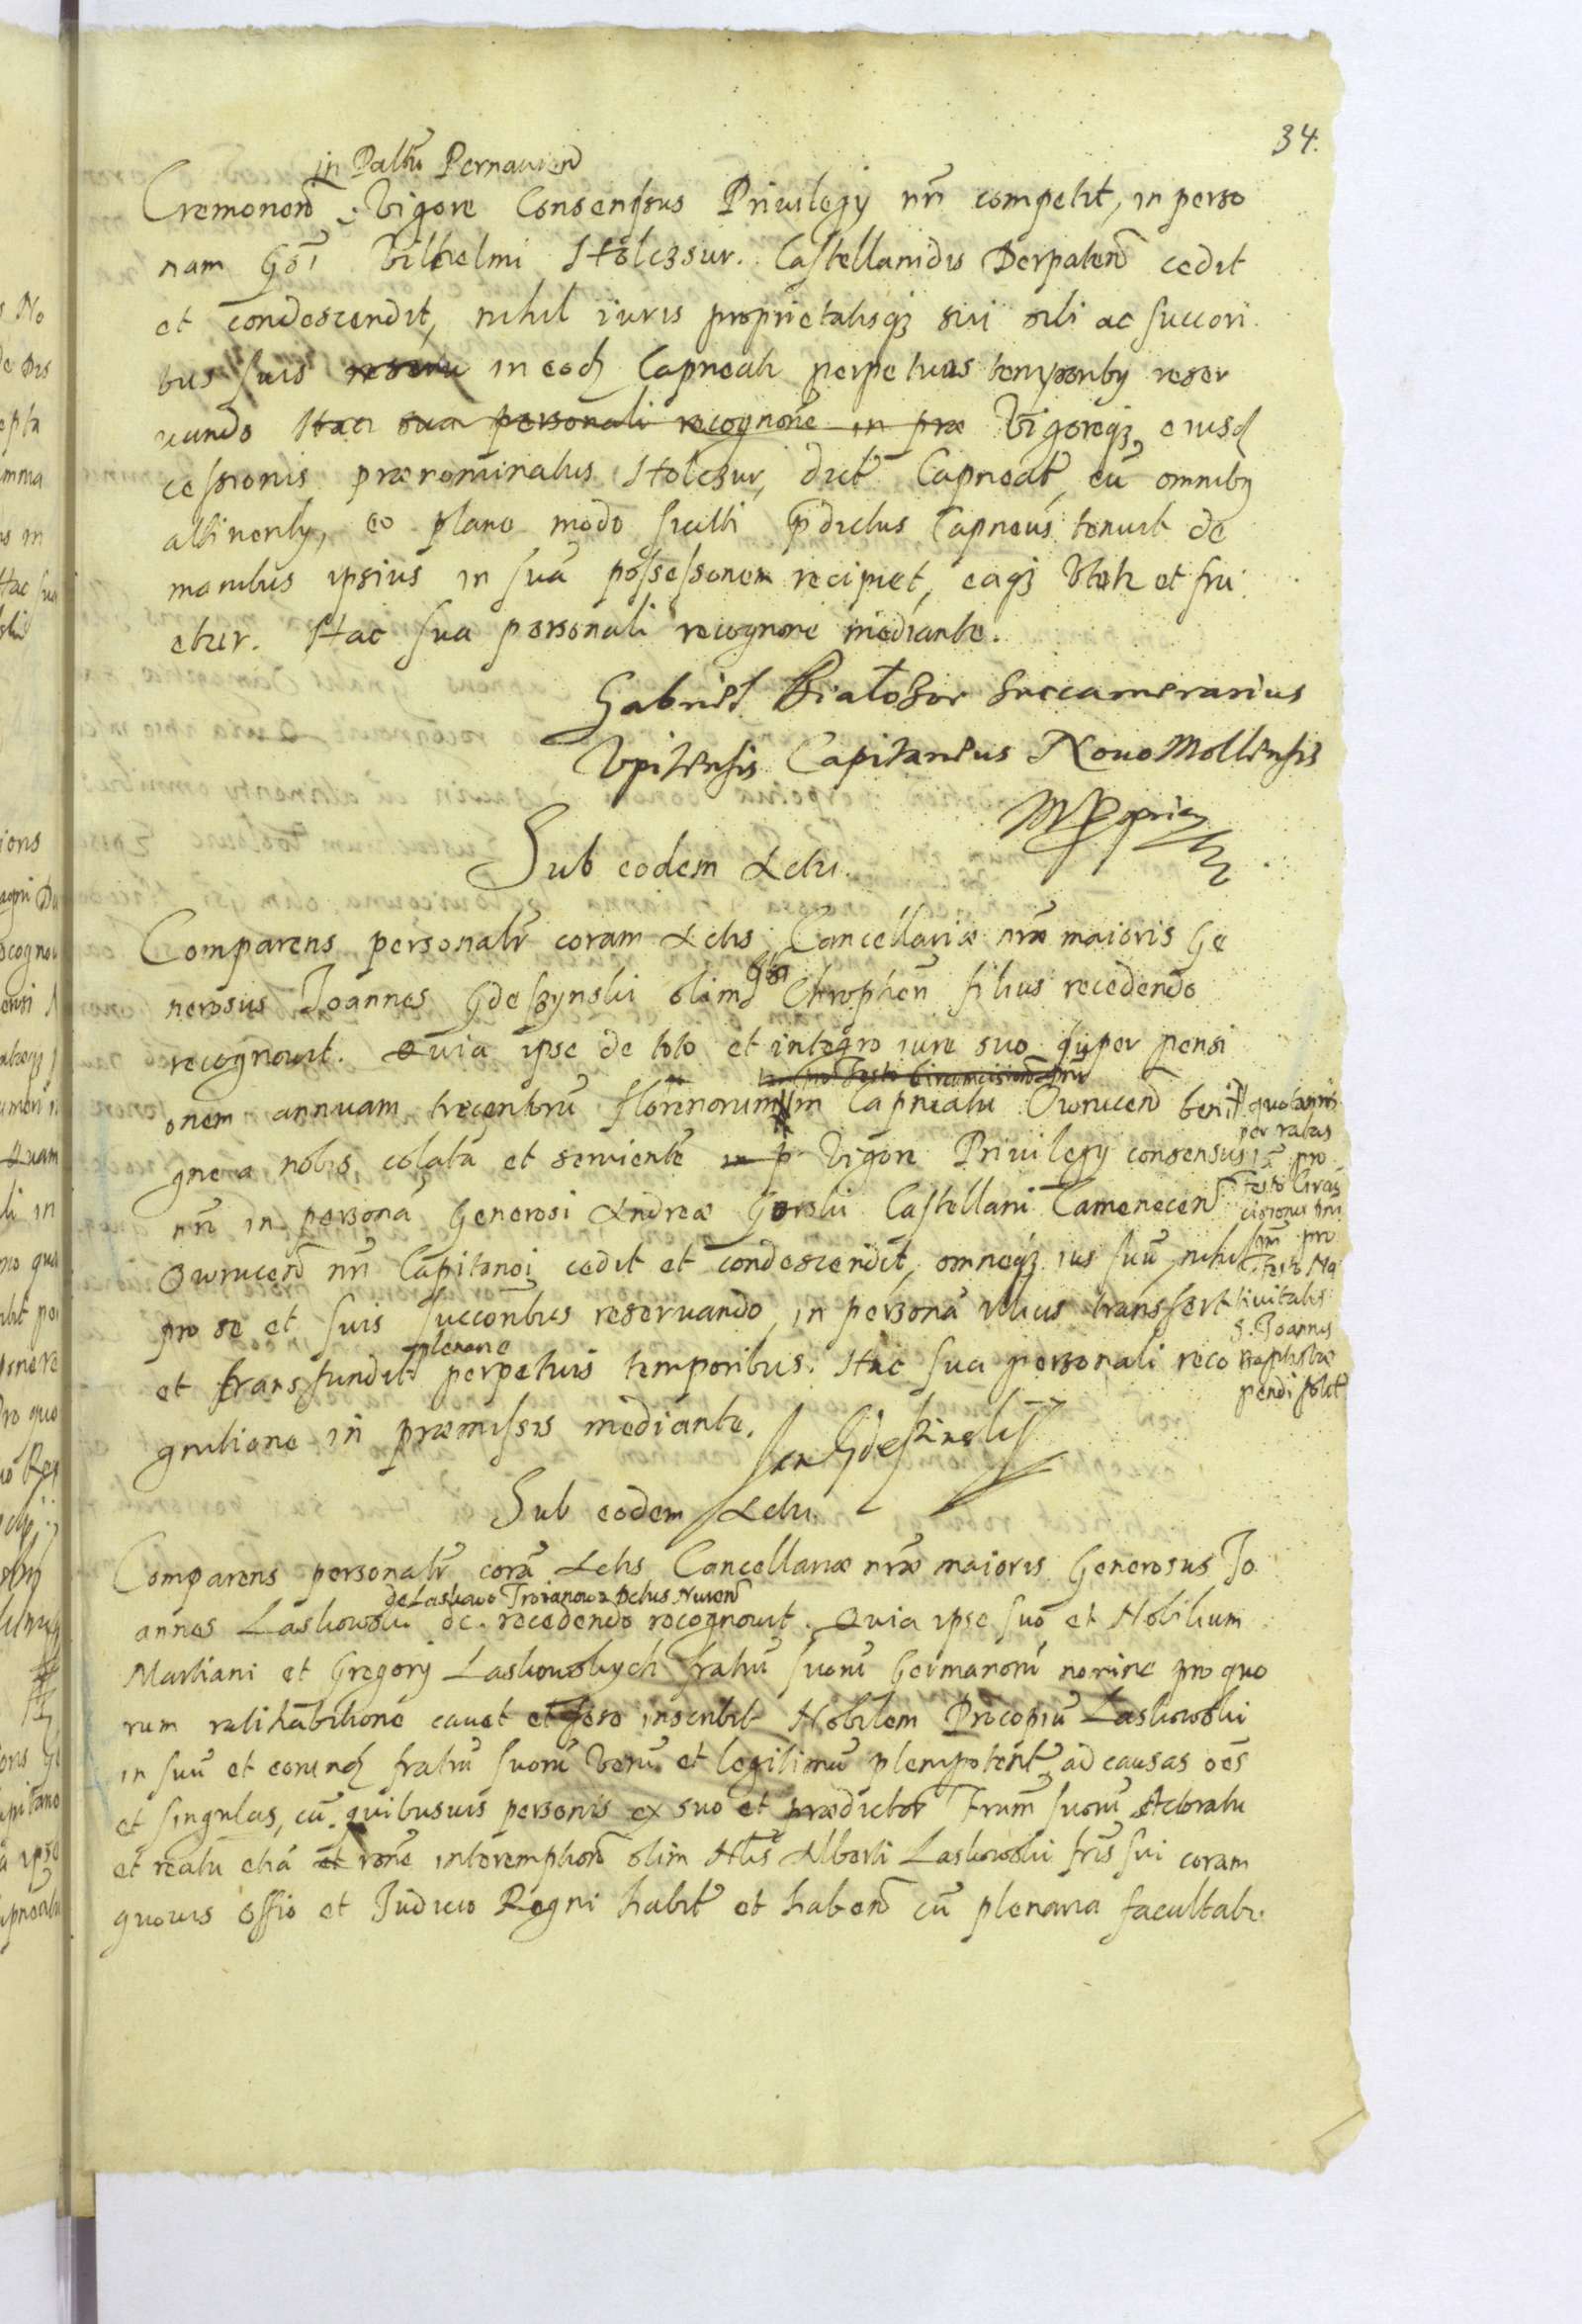 34.
in Paltu Pernauien
Cremonen Vigore Consensus Priuilegy nri competit, in perso
nam Gsi Vilhelmi Stolczsur. Castellanidis Derpaten cedit
et condescendit, nihil iuris proprietatisqz sui sibi ac succori
bus suis reseru in eod Capneatu perpetuis temporiby reser
uando Hac sua personali recognone in præ Vigoreqz eiusd
cessionis prænominatus Stolczur, dict Capneat, cu omniby
attinenty, eo plane modo sicuti pdictus Capneus tenuit de
manibus ipsius in sua possessionem recipiet, eaqz Vteh et fru
etur. Hac sua personali recognone mediante.
Gabriel Białosor Succamerarius
Vpitensis Capitaneus NouoMollensis
MPpria
Sub eodem Actu.
Comparens personalr coram Actis Cancellariæ nræ maioris Ge
nerosus Joannes Gdeszynski olim Gsi Chrophen filius recedendo
recognouit. Quia ipse de toto et integro iure suo super pensi
pro Festo Circumcisionis
onem annuam trecentoru florenorum in Capneatu Owrucen beni
quotannis
per ratas
gne a nobis colata et seruiente in p Vigore Priuilegy consensus
pro
Festo Circu
nri in persona Generosi Andreæ Gorski Castellani Camenecen
cisionis Dni
pro
Owrucen nri Capitanei cedit et condescendit, omneqz ius suu nihil
Festo Na
pro se et suis succoribus reseruando, in persona illius transfert
tiuitatis
S. Joannis
plenarie
et transfundit perpetuis temporibus. Hac sua personali reco
Baptistæ
pendi solit
gnitione in præmissis mediante.
Jan Gdeszinski
Sub eodem Actu.
Comparens personalr cora Actis Cancellariæ nræ maioris Generosus Jo
de Laskowo Troianowa Nuren
annes Laskowski &c. recedendo recognouit. Quia ipse suo et Nobilium
Martiani et Gregorij Laskowskych fratru suoru Germanoru nomine pro quo
rum ratihabitione cauet et inscribit Nobilem Procopiu Laskowski
in suu et eorund fratru suoru Veru et legitimu plenipotent ad causas oes
et singulas, cu quibusuis personis ex suo et prædictor Frum suoru Actoratu
et reatu etia et rone interemption olim Alberti Laskowski fris sui coram
quouis Offio et Judicio Regni habit et haben cu plenaria facultate.